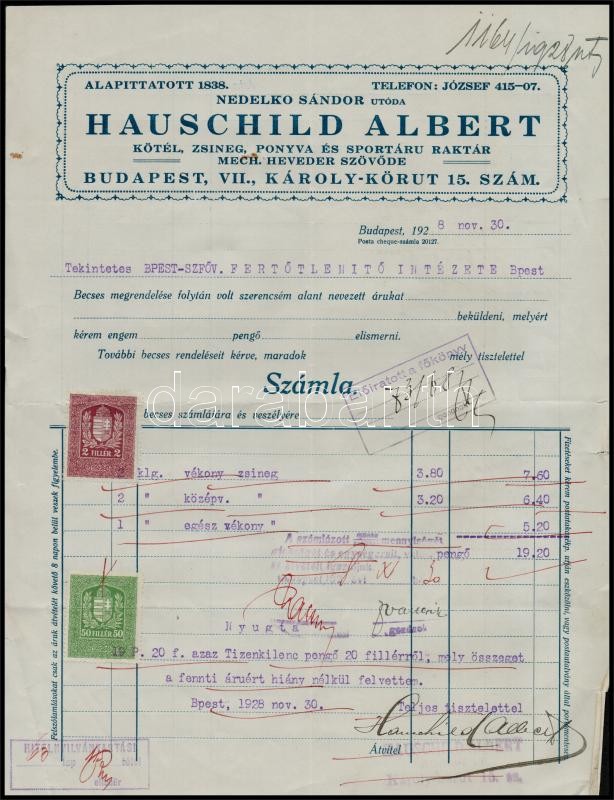 ALAPITTATOTT 1838.
TELEFON: JÓZSEF 415-07.
NEDELKO SÁNDOR UTÓDA
HAUSCHILD ALBERT
KÖTÉL, ZSINEG, PONYVA ÉS SPORTÁRU RAKTÁR
MECH. HEVEDER SZÖVŐDE
BUDAPEST, VII., KÁROLY-KÖRUT 15. SZÁM.
Budapest, 192 8 nov. 30.
Posta cheque-számla 20127.
Tekintetes BPEST-SZFÖV. FERTŐTLENITŐ INTÉZETE Bpest
Becses megrendelése folytán volt szerencsém alant nevezett árukat
beküldeni, melyért
kérem engem pengő elismerni.
További becses rendeléseit kérve, maradok mély tisztelettel
Előiratott a főkönyv
Számla.
becses számlájára és veszélyére
darabanth
2 FILLÉR 2
2 klg. vékony zsineg 3.80 7.60
2 " középv. " 3.20 6.40
1 " egész vékony " 5.20
A számlázott mennyiségét
pengő 19.20
50 FILLÉR 50
Nyugta
19 P. 20 f. azaz Tizenkilenc pengő 20 fillérről, mely összeget
a fennti áruért hiány nélkül felvettem.
Bpest, 1928 nov. 30. Teljes tisztelettel
Hauschild Albert
Átvitel
HITELNYILVÁNTARTÁSI
Felszólamlásokat csak az áruk átvételét követő 8 napon belül veszek figyelembe.
Fizetéseket kérem postatakarékp. utján eszközölni, vagy postautalvány által portómentesen.